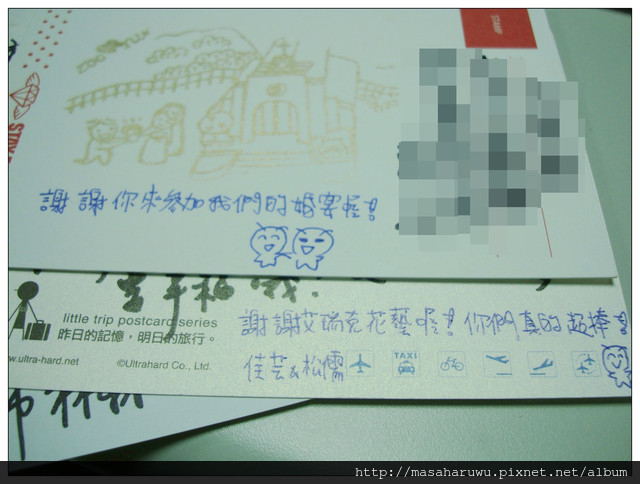 STAMP
謝謝你來參加我們的婚宴喔!
little trip postcard series
昨日的記憶,明日的旅行。
www.ultra-hard.net ©Ultrahard Co., Ltd.
謝謝艾瑞克花藝喔!你們真的超棒!
佳芸&松儒
TAXI
http://masaharuwu.pixnet.net/album